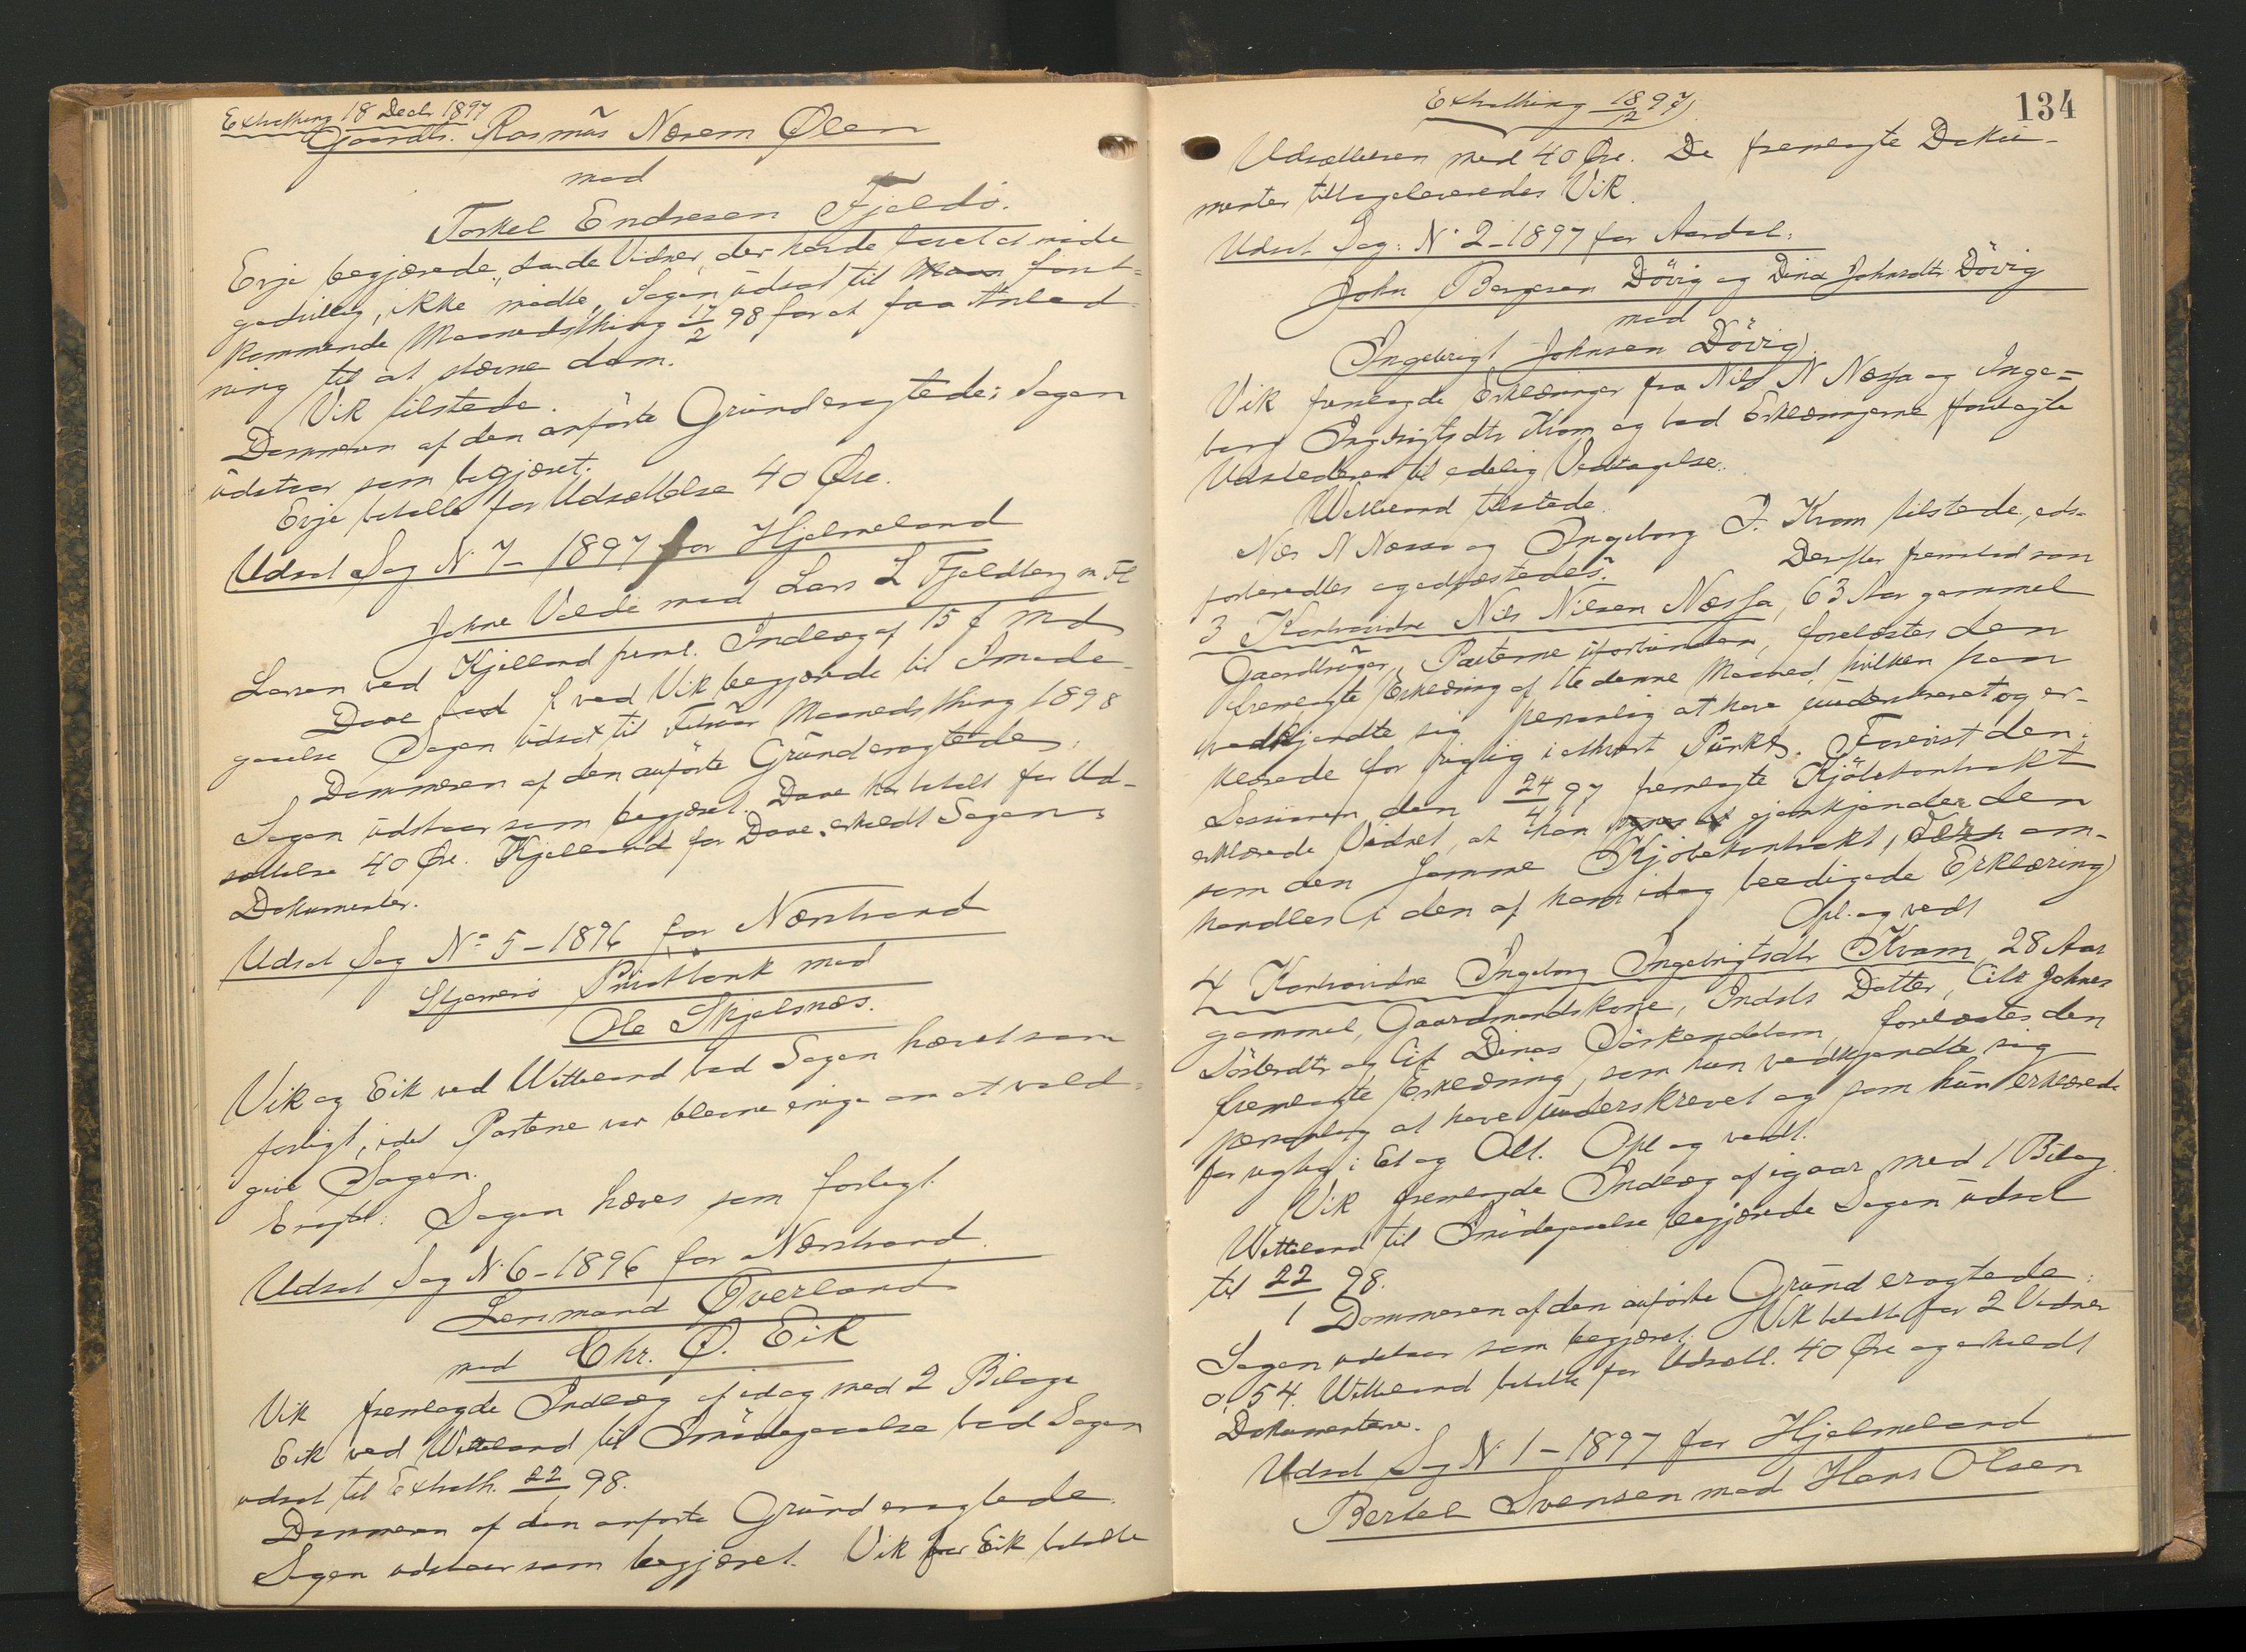 Extrathing 18 Decb 1897
Gaardb. Rasmus Nærem Ølen
mod
Torkel Endresen Fjeldø.
Evje begjærede, da de Vidner, der havde lovet at møde
godvillig, ikke mødte, Sagen udsat til först-
kommende Maanedsthing 17/2 98 for at faa Anled-
ning til at stævne dem.
Vik tilstede.
Dommeren af den anførte Grund eragtede: Sagen
udstaar som begjæret.
Evje betalte for Udsættelse 40 Øre.
Udsat Sag N. 7 - 1897 for Hjelmeland
Johne Valde mod Lars L Fjeldberg m Fl
Larsen ved Kjelland freml. Indlæg af 15 d Md
Daae ved Vik begjærede til Imøde-
gaaelse Sagen udsat til Februar Maanedsthing 1898
Dommeren af den anførte Grund eragtede:
Sagen udstaar som begjæret. Daae har betalt for Ud-
sættelse 40 Øre. Kjelland for Daae erholdt Sagens
Dokumenter.
Udsat Sag No 5 - 1896 for Nærstrand
Stjernerø Privatbank mod
Ole Skjelsnæs.
Vik og Eik ved Witteland bad Sagen hævet som
forligt, idet Parterne var blevne enige om at vold-
give Sagen.
Eragtet: Sagen hæves som forligt.
Udsat Sag N. 6 - 1896 for Nærstrand.
Lensmand Øverland
mod Chr. O. Eik
Vik fremlagde Indlæg af idag med 2 Bilage
Eik ved Witteland til Imødegaaelse bad Sagen
udsat til Extrath. 22/1 98.
Dommeren af den anførte Grund eragtede:
Sagen udstaar som begjæret. Vik for Eik betalte
Extrathing 18/12 97.
134
Udsættelsen med 40 Øre. De fremlagte Doku-
menter tilbageleveredes Vik.
Udsat Sag: N. 2 - 1897 for Aardal:
John Bergesen Døvig og Dina Johnsdtr Døvig
mod
Ingebrigt Johnsen Døvig.
Vik fremlagde Erklæringer fra Nils N Næssa og Inge-
borg Ingebrigtsdtr Kvam og bad Erklæringerne forelagte
Udstederen til edelig Vedtagelse.
Witteland tilstede.
Nils N Næssa og Ingeborg I. Kvam tilstede, eds-
forberedtes og edfæstedes. Derefter fremstod som
3 Kontravidne Nils Nilsen Næssa, 63 Aar gammel
Gaardbruger, Parterne uforbunden, forelæstes den
fremlagte Erklæring af 16de denne Maaned, hvilken han
vedkjendte sig personlig at have underskrevet og er-
klærede for rigtig i ethvert Punkt. Forevist den i
Sessionen den 24/4 97 fremlagte Kjøbekontrakt
erklærede Vidnet, at han gjenkjender den
som den samme Kjøbekontrakt, om-
handles i den af ham idag beedigede Erklæring
Opl. og vedt
4 Kontravidne Ingeborg Ingebrigtsdtr Kvam, 28 Aar
gammel, Gaardmandskone, Indsts Datter, Cit. Johnes
Sønnedtr og Cit Dinas Søskendebarn, forelæstes den
fremlagte Erklæring, som hun vedkjendte sig
personlig at have underskrevet og som hun erklærede
for rigtig i Et og Alt. Opl og vedt.
Vik fremlagde Indlæg af igaar med 1 Bilag.
Witteland til Imødegaaelse begjærede Sagen udsat
til 22/1 98.
Dommeren af den anførte Grund eragtede:
Sagen udstaar som begjæret. Vik betalte for 2 Vidner
0,54. Witteland betalte for Udsætt. 40 Øre og erholdt
Dokumenterne.
Udsat Sag N. 1 - 1897 for Hjelmeland
Bertel Svensen mod Hans Olsen